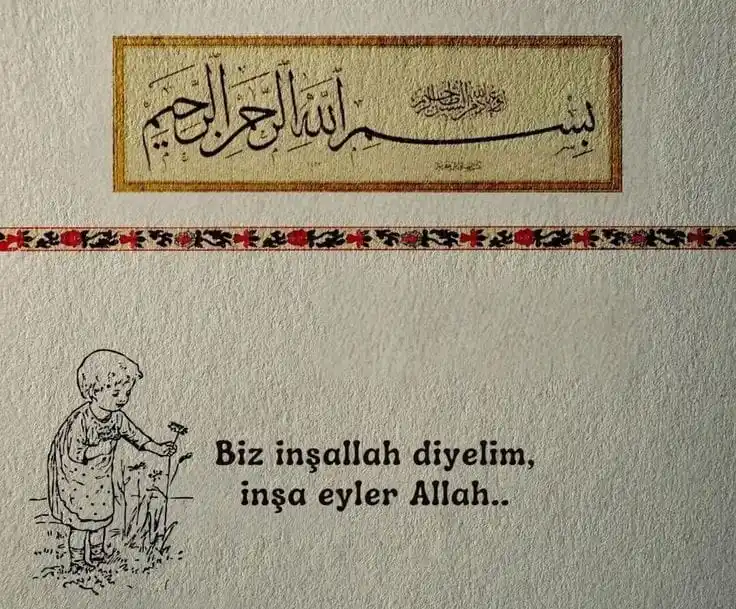 بسم الله الرحمن الرحيم
Biz inşallah diyelim,
inşa eyler Allah..